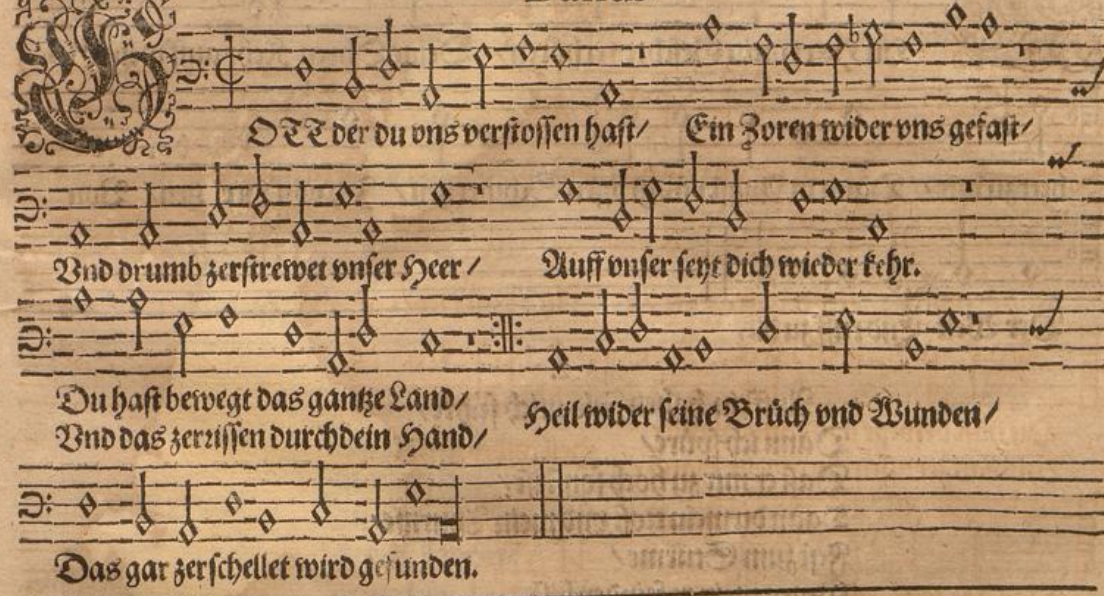 GOTT der du vns verstossen hast/ Ein Zoren wider vns gefast/
Vnd drumb zerstrewet vnser Heer/ Auff vnser seyt dich wieder kehr.
Du hast bewegt das gantze Land/
Vnd das zerrissen durch dein Hand/ Heil wider seine Brüch vnd Wunden/
Das gar zerschellet wird gesunden.